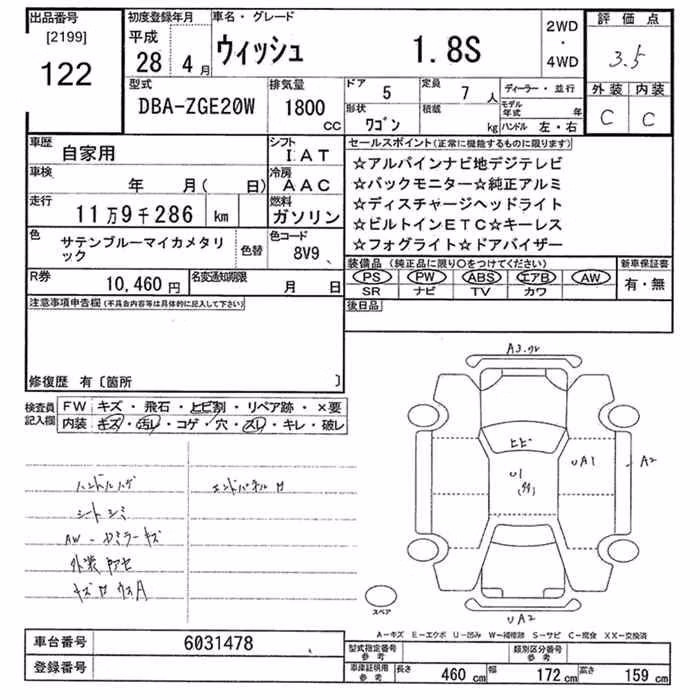 出品番号 初度登録年月 車名・グレード 評価点
[2199] 平成 2WD
122 28 4月 ウィッシュ 1.8S ・ 3.5
4WD
型式 排気量 ドア 5 定員 7人 ディーラー・並行 外装 内装
DBA-ZGE20W 1800cc 形状 ワゴン 積載 kg モデル年式 年 C C
ハンドル 左・右
車歴 自家用 シフト IAT セールスポイント(正常に機能するものに限ります)
車検 年 月( 日) 冷房 AAC ☆アルパインナビ地デジテレビ
☆バックモニター☆純正アルミ
走行 11万9千286 km 燃料 ガソリン ☆ディスチャージヘッドライト
☆ビルトインETC☆キーレス
色 サテンブルーマイカメタリック 色替 色コード 8V9 ☆フォグライト☆ドアバイザー
装備品(純正品に限り○をつけてください) 新車保証書
R券 10,460円 名変通知期限 月 日 PS PW ABS エアB AW 有・無
SR ナビ TV カワ
注意事項申告欄(不具合内容等は具体的に記入して下さい) 後日品
修復歴 有〔箇所 〕
検査員記入欄 FW キズ・飛石・ヒビ割・リペア跡・×要
内装 キズ・汚レ・コゲ・穴・スレ・キレ・破レ
ハンドルハゲ エンドパネル
シートシミ
AW
外装
A3
ヒビ
U1
UA1
A2
スペア
UA2
A－キズ E－エクボ U－凹み W－補修跡 S－サビ C－腐食 XX－交換済
車台番号 6031478
型式指定番号 参考 類別区分番号 参考
登録番号 車庫証明用 参考 長さ 460cm 幅 172cm 高さ 159cm